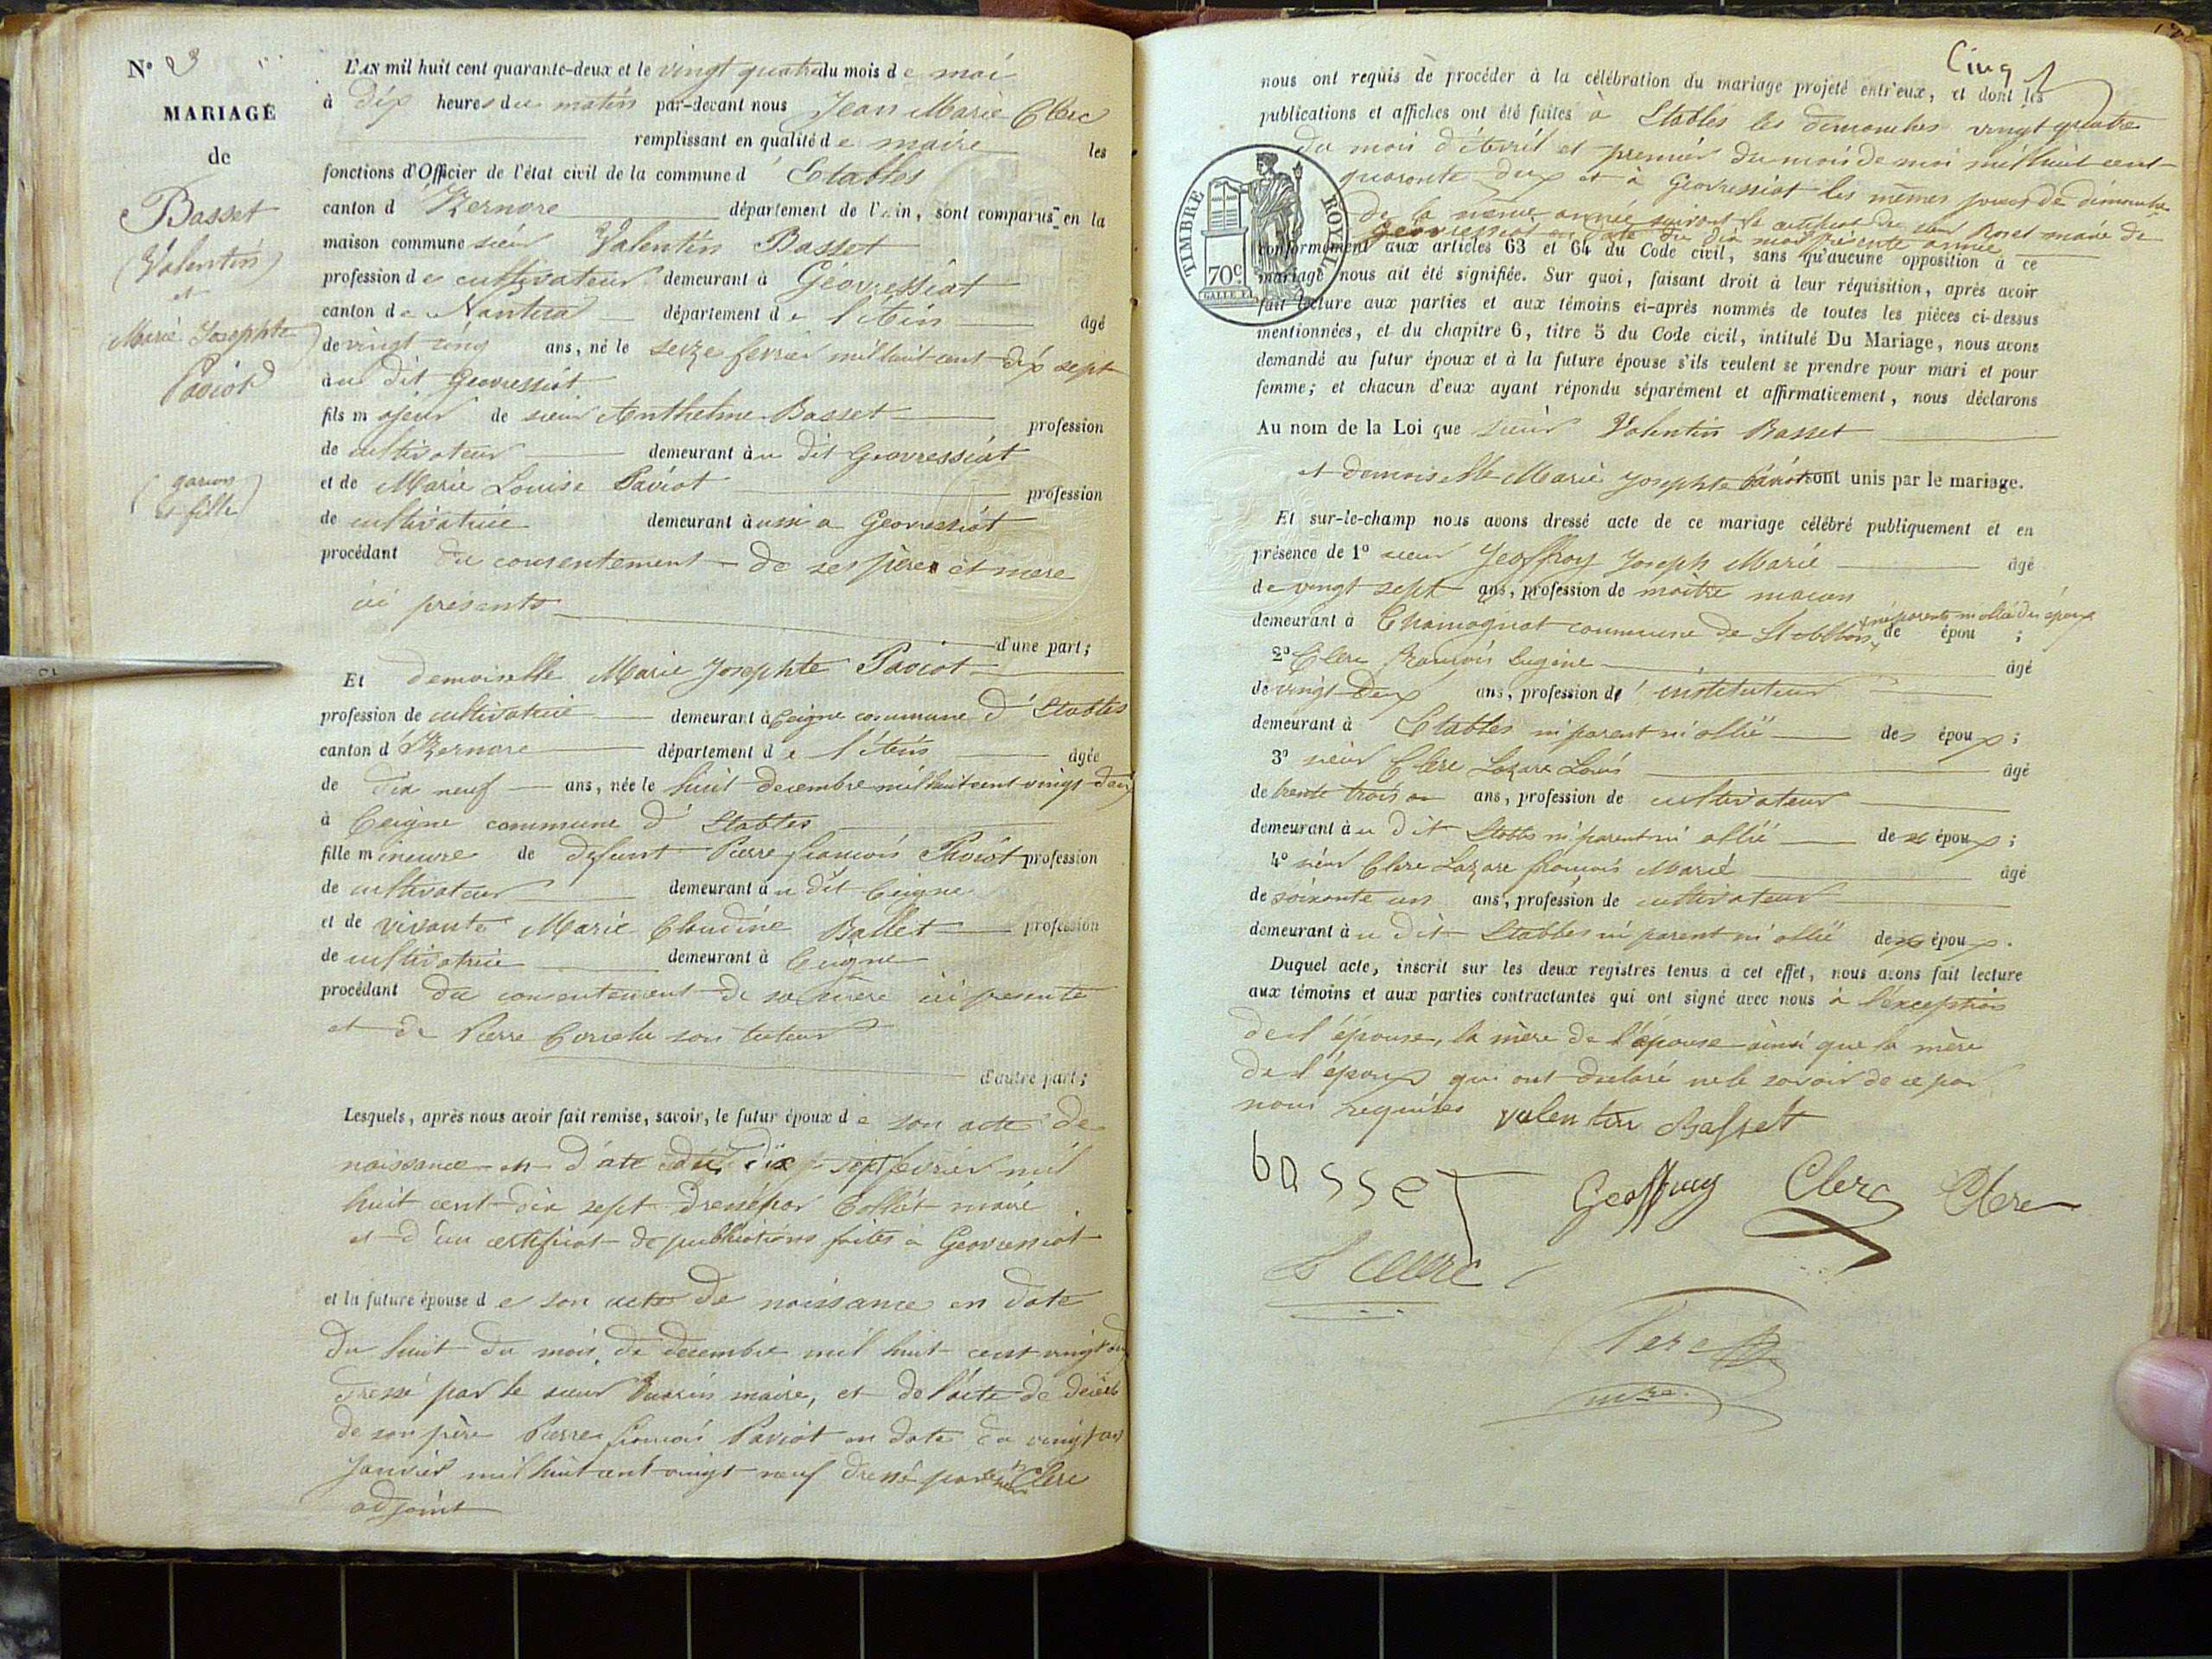 N° 3
MARIAGE
de
Basset
(Valentin)
et
Marie Josephte
Paviot
(garçon
et fille)
L'AN mil huit cent quarante-deux et le vingt quatre du mois de mai
à dix heures du matin par-devant nous Jean Marie Clerc
remplissant en qualité de maire les
fonctions d'Officier de l'état civil de la commune d'Etables
canton d'Izernore département de l'Ain, sont comparus en la
maison commune sieur Valentin Basset
profession de cultivateur demeurant à Géovressiat
canton de Nantua département de l'Ain âgé
de vingt cinq ans, né le seize fevrier mil huit cent dix sept
au dit Geovressiat
fils majeur de sieur Anthelme Basset profession
de cultivateur demeurant au dit Geovressiat
et de Marie Louise Paviot profession
de cultivatrice demeurant aussi a Geovressiat
procédant du consentement de ses père et mere
ici présents
d'une part;
Et demoiselle Marie Josephte Paviot
profession de cultivatrice demeurant à Ceigne commune d'Etables
canton d'Izernore département de l'Ain âgée
de dix neuf ans, née le huit decembre mil huit cent vingt deux
à Ceigne commune d'Etables
fille mineure de defunt Pierre françois Paviot profession
de cultivateur demeurant au dit Ceigne
et de vivante Marie Claudine Ballet profession
de cultivatrice demeurant à Ceigne
procédant du consentement de sa mère ici presente
et de Pierre son tuteur
d'autre part;
Lesquels, après nous avoir fait remise, savoir, le futur époux de son acte de
naissance en date du dix sept fevrier mil
huit cent dix sept dressé par maire
et d'un certificat de publications faites à Geovressiat
et la future épouse de son acte de naissance en date
du huit du mois de decembre mil huit cent vingt deux
dressé par le sieur maire, et de l'acte de décès
de son père Pierre françois Paviot en date du vingt
janvier mil huit cent vingt neuf dressé par le sieur Clerc
adjoint
Cinq
nous ont requis de procéder à la célébration du mariage projeté entr'eux, et dont les
publications et affiches ont été faites à Etables les dimanches vingt quatre
du mois d'Avril et premier du mois de mai mil huit cent
quarante deux et à Geovressiat les mêmes jours de dimanche
de la même année suivant le certificat du sieur Roset maire de
Geovressiat en date du dix mai présente année
conformément aux articles 63 et 64 du Code civil, sans qu'aucune opposition à ce
mariage nous ait été signifiée. Sur quoi, faisant droit à leur réquisition, après avoir
fait lecture aux parties et aux témoins ci-après nommés de toutes les pièces ci-dessus
mentionnées, et du chapitre 6, titre 5 du Code civil, intitulé Du Mariage, nous avons
demandé au futur époux et à la future épouse s'ils veulent se prendre pour mari et pour
femme; et chacun d'eux ayant répondu séparément et affirmativement, nous déclarons
TIMBRE ROYAL
70c
Au nom de la Loi que sieur Valentin Basset
et demoiselle Marie Josephte Paviot sont unis par le mariage.
Et sur-le-champ nous avons dressé acte de ce mariage célébré publiquement et en
présence de 1° sieur Jeoffroy Joseph Marie âgé
de vingt sept ans, profession de maître macon
demeurant à Chamagnat commune de ni parent ni allié des époux de épou ;
2° Clerc François Eugène âgé
de vingt deux ans, profession d'instituteur
demeurant à Etables ni parent ni allié des époux;
3° sieur Clerc Lazare Louis âgé
de trente trois ans, profession de cultivateur
demeurant au dit Etables ni parent ni allié des époux;
4° sieur Clerc Lazare françois Marie âgé
de soixante un ans, profession de cultivateur
demeurant au dit Etables ni parent ni allié des époux.
Duquel acte, inscrit sur les deux registres tenus à cet effet, nous avons fait lecture
aux témoins et aux parties contractantes qui ont signé avec nous à l'exception
de l'épouse, la mère de l'épouse ainsi que la mère
de l'époux qui ont declaré ne le savoir de ce par
nous requises valentin Basset
basset Geoffray Clerc Clerc
Clerc
Clerc
mre.